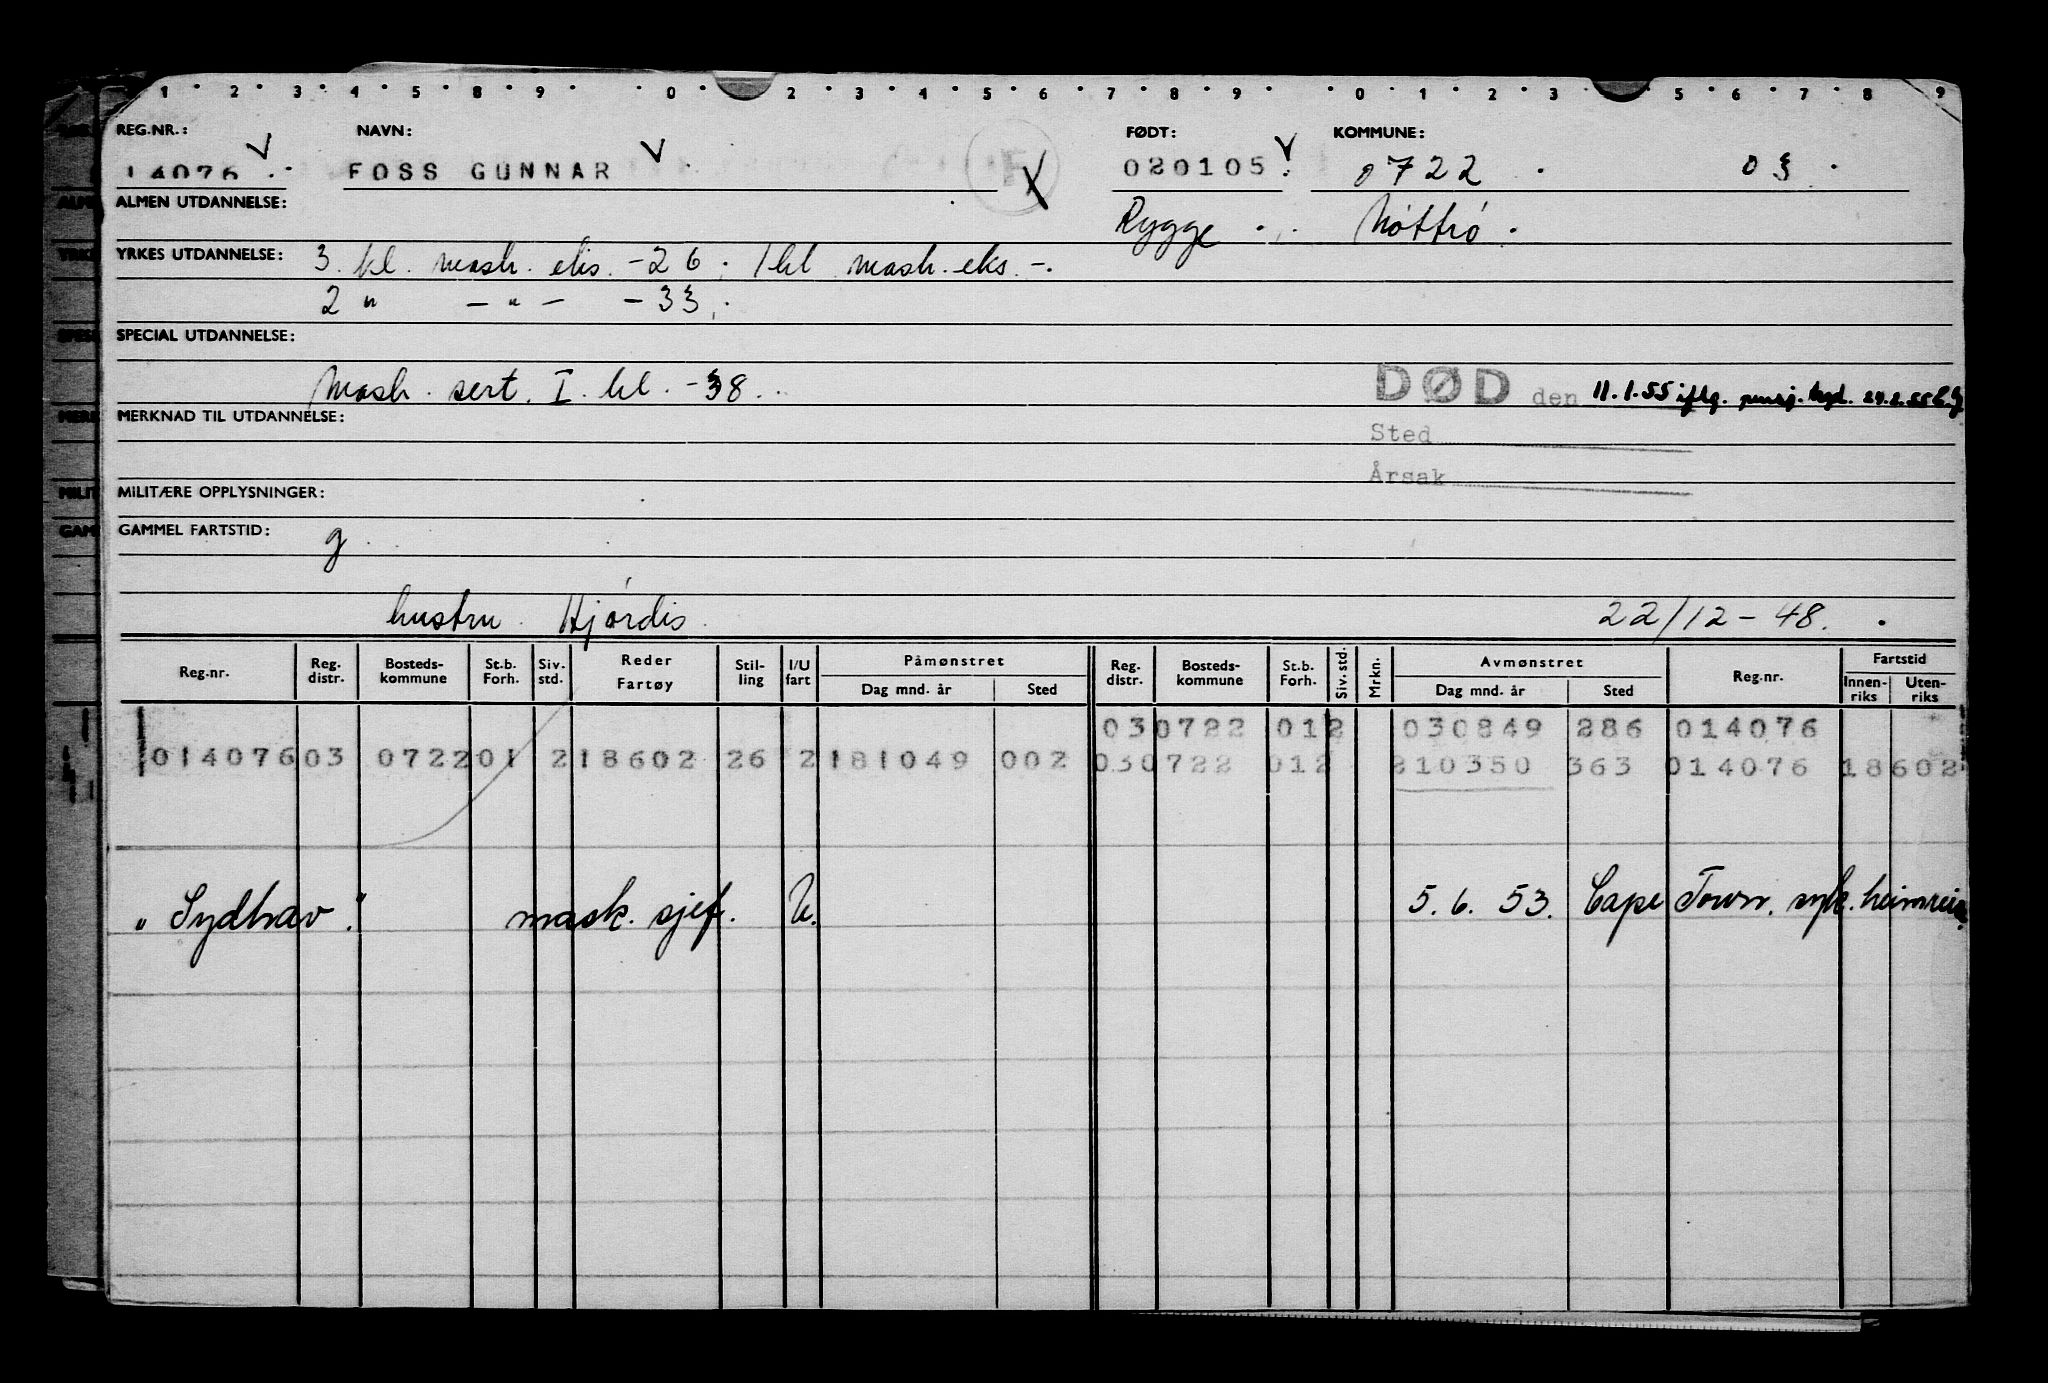 1 2 3 4 5 8 9 0 2 3 4 5 6 7 8 9 0 1 2 3 5 6 7 8 9
REG.NR.: NAVN: FØDT: KOMMUNE:
14076 FOSS GUNNAR F 020105 0722 03
ALMEN UTDANNELSE: Rygge Nøttrø
YRKES UTDANNELSE: 3. kl. mask. eks. -26. 1 kl mask. eks. -.
2 " - " - -33.
SPECIAL UTDANNELSE:
Mask. sert. I. kl. -38. DØD den 11.1.55 iflg. pensj. tryd. 24.2.55
MERKNAD TIL UTDANNELSE: Sted
Årsak
MILITÆRE OPPLYSNINGER:
GAMMEL FARTSTID: g.
hustru. Hjørdis. 22/12-48.
Reg.nr. Reg. distr. Bosteds-kommune St.b. Forh. Siv. std. Reder Fartøy Stil-ling I/U fart Påmønstret Dag mnd. år Sted Reg. distr. Bosteds-kommune St.b. Forh. Siv. std. Mrkn. Avmønstret Dag mnd. år Sted Reg.nr. Fartstid Innen-riks Uten-riks
030722 012 030849 286 014076
014076 03 0722 01 2 18602 26 2 181049 002 030722 012 210350 363 014076 18602
"Sydhav." mask. sjef. U. 5. 6. 53. Cape Town. syk. heimreise.